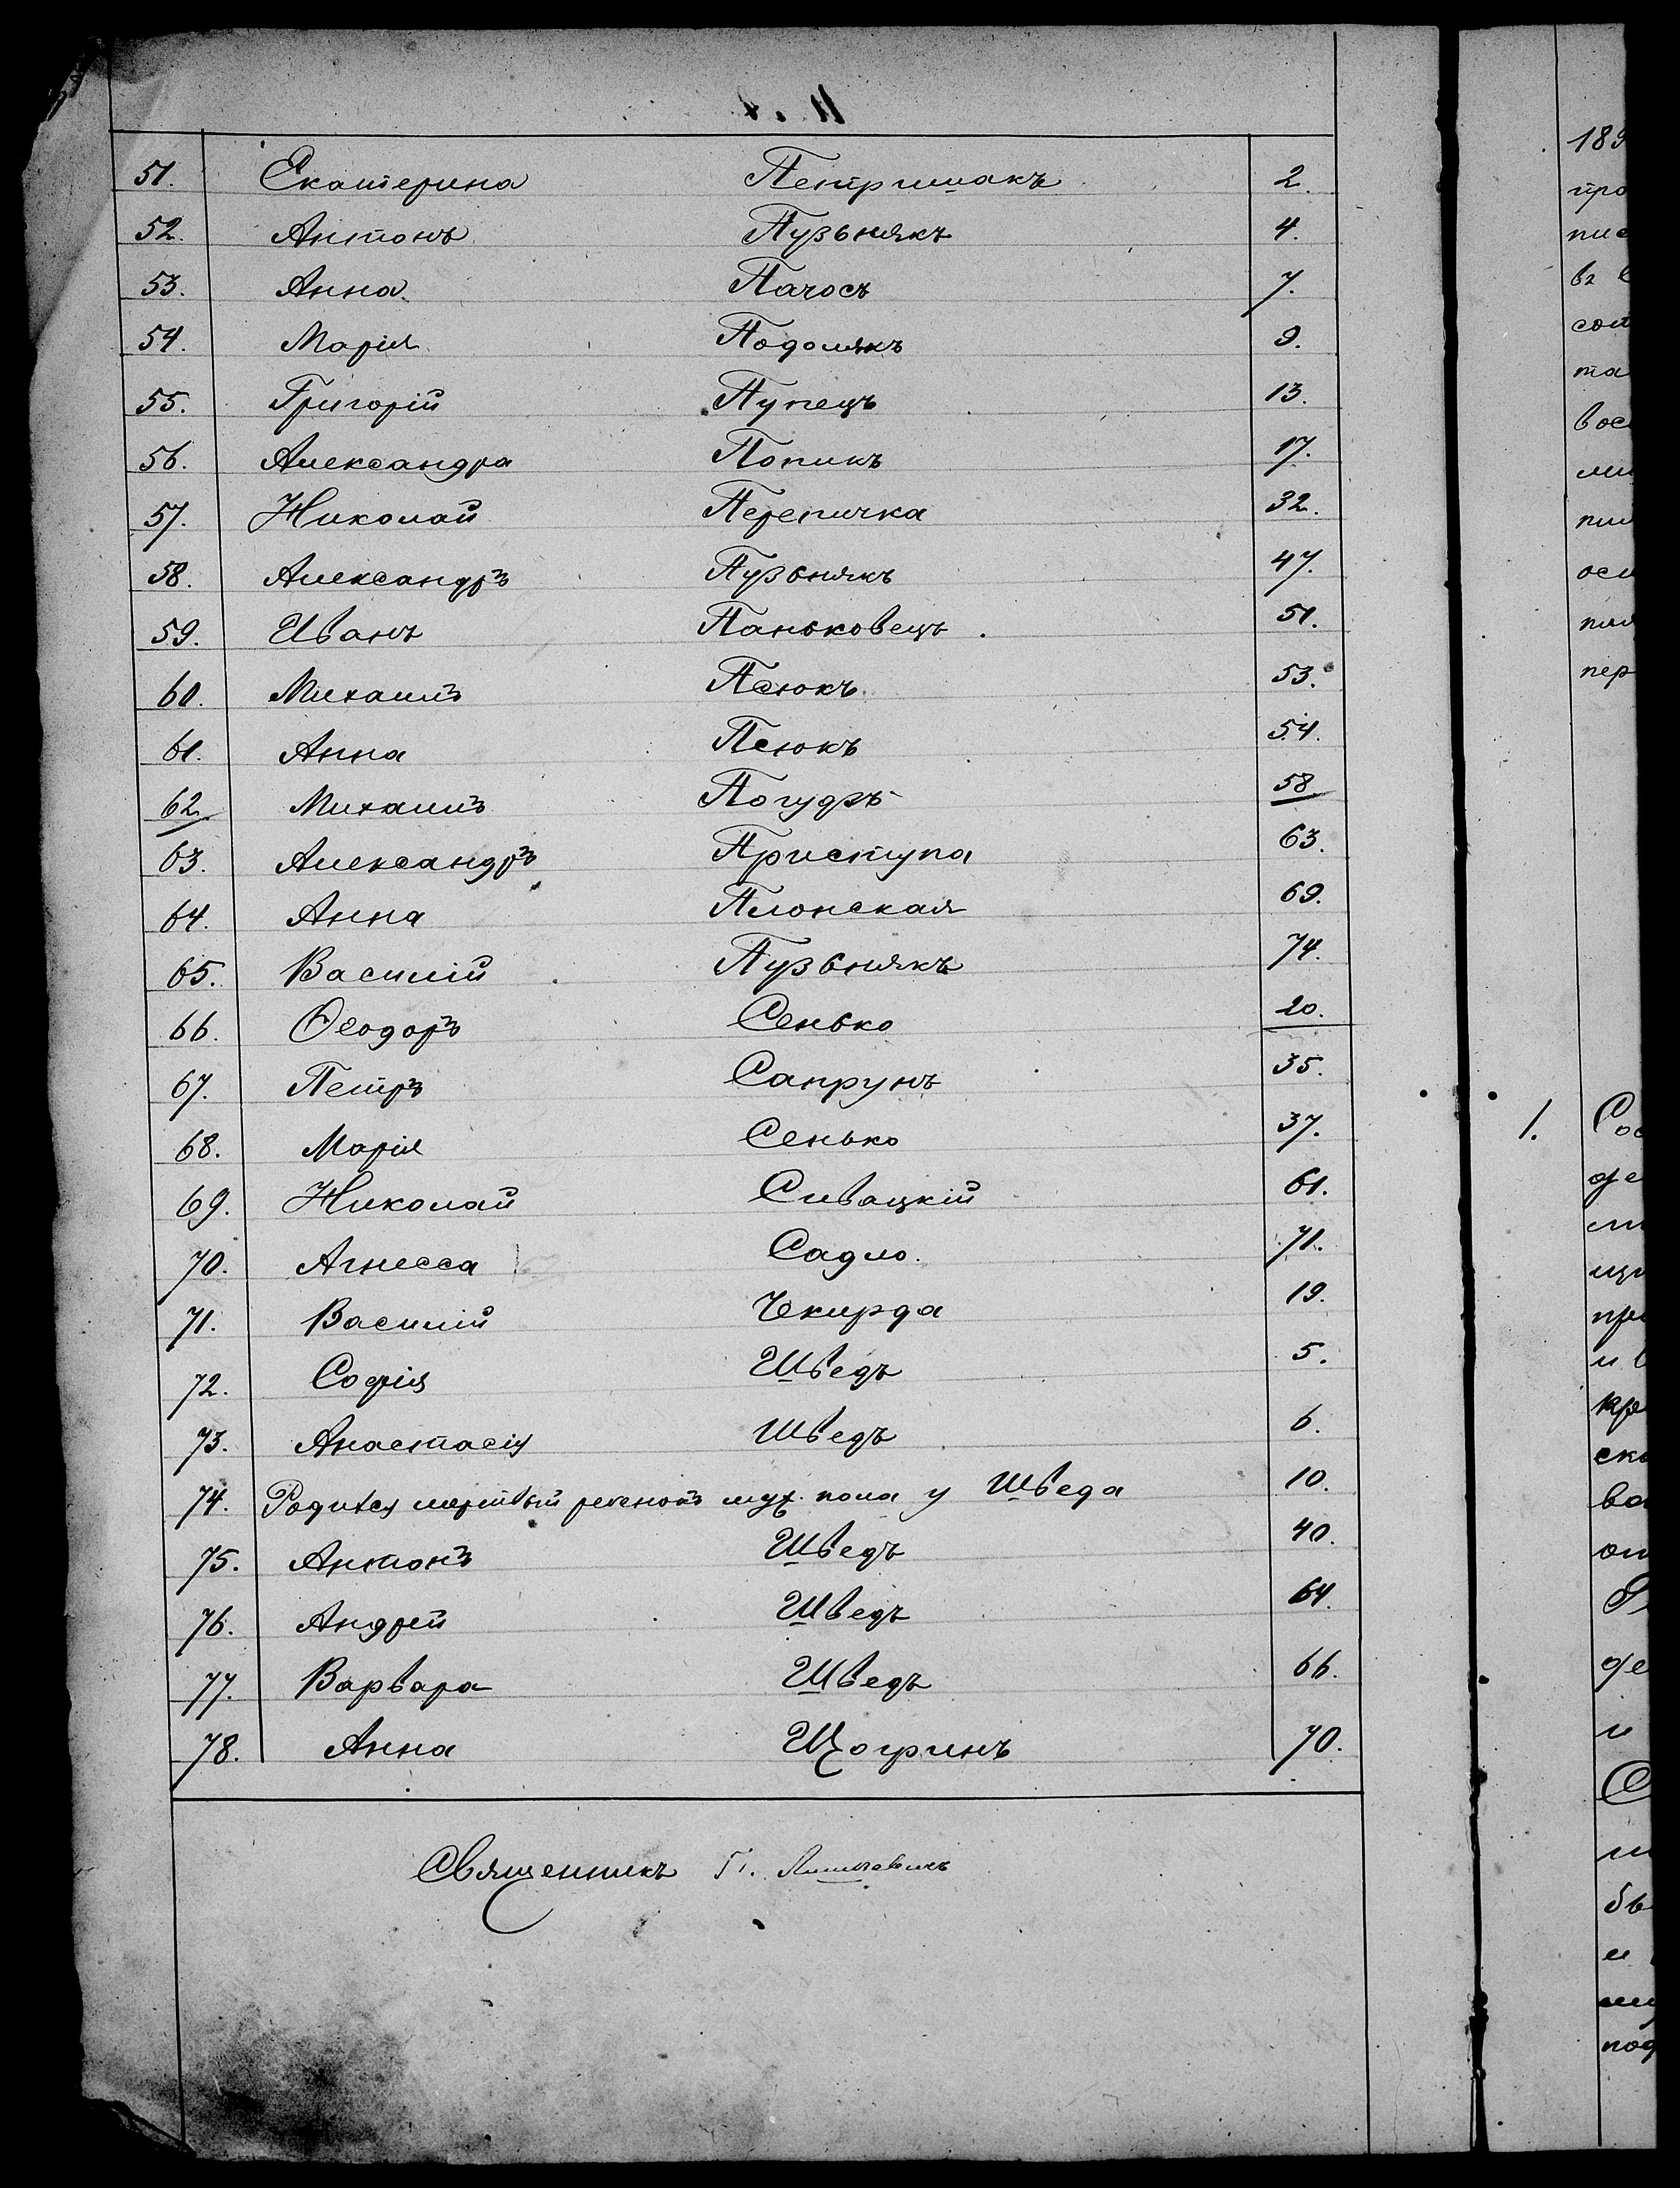 51. Екатерина Петришакъ 2.
52. Антонъ Пузьнякъ 4.
53. Анна Пачосъ 7.
54. Марія Подолякъ 9.
55. Григорій Пупецъ 13.
56. Александра Попикъ 17.
57. Николай Перепичка 32.
58. Александръ Пузьнякъ 47.
59. Иванъ Паньковецъ 51.
60. Михаилъ Псюкъ 53.
61. Анна Псюкъ 54.
62. Михаилъ Погудръ 58
63. Александръ Приступа 63.
64. Анна Плонская 69.
65. Василій Пузьнякъ 74.
66. Ѳеодоръ Сенько 20.
67. Петръ Сапрунъ 35.
68. Марія Сенько 37.
69. Николай Сивацкій 61.
70. Агнесса Садло. 71.
71. Василій Чекирда 19.
72. Софія Шведъ 5.
73. Анастасія Шведъ 6.
74. Родился мертвый ребенокъ муж. пола у Шведа 10.
75. Антонъ Шведъ 40.
76. Андрей Шведъ 64.
77. Варвара Шведъ 66.
78. Анна Щогринъ 70.
Священникъ
189
про
пис
въ
сот
та
вос
пер
1.